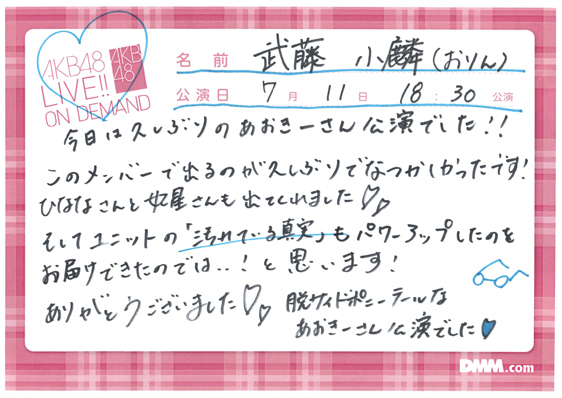 AKB48
LIVE!!
ON DEMAND
AKB
48
名前 武藤 小麟(おりん)
公演日 7月 11日 18:30 公演
今日は久しぶりのあおきーさん公演でした!!
このメンバーで出るのが久しぶりでなつかしかったです!
ひななさんと妃星さんも出てくれました♡♡
そしてユニットの「汚れている真実」もパワーアップしたのを
お届けできたのでは..!と思います!
ありがとうございました♡♡
脱サイドポニーテールな
あおきーさん公演でした♥
DMM.com